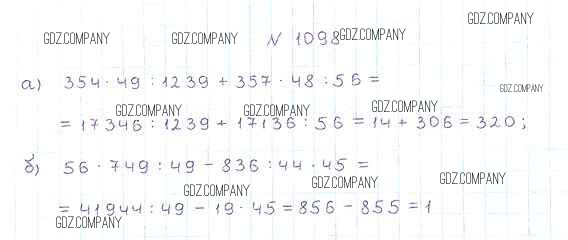 GDZ.COMPANY
GDZ.COMPANY GDZ.COMPANY № 1098 GDZ.COMPANY
а) 354 · 49 : 1239 + 357 · 48 : 56 =
GDZ.COMPANY
GDZ.COMPANY GDZ.COMPANY GDZ.COMPANY
= 17346 : 1239 + 17136 : 56 = 14 + 306 = 320;
б) 56 · 749 : 49 - 836 : 44 · 45 =
GDZ.COMPANY GDZ.COMPANY GDZ.COMPANY
= 41944 : 49 - 19 · 45 = 856 - 855 = 1
GDZ.COMPANY